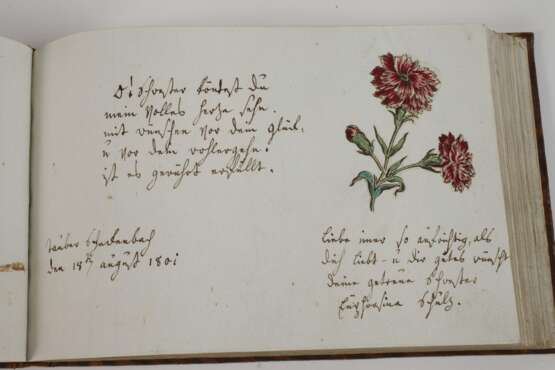 O! Schwester köntest du
mein Volles hertze sehn.
mit wünschen vor dein Glück,
u vor dein wohlergehn.
ist es gerührt erfüllt.
Tauber Scheckenbach
den 18 august 1801
Liebe imer so aufrichtig, als
dich liebt - u dir gutes wünscht
Deine getreue Schwester
Euphrosina Schulz.